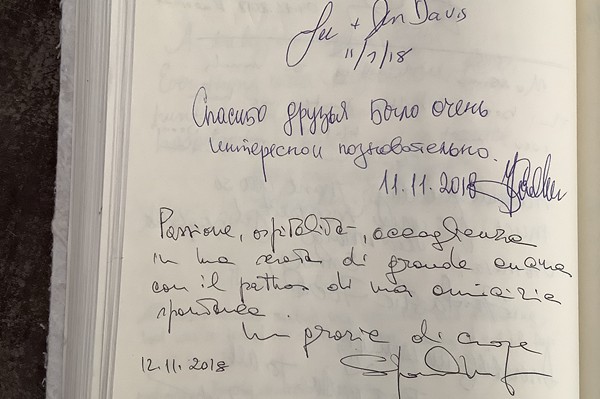 + Davis
11/7/18
Спасибо друзья Было очень
интересно и познавательно.
11.11.2018
Passione, ospitalità, accoglienza
in una serata di grande
con il pathos di una amicizia
spontanea.
Un grazie di cuore
12.11.2018